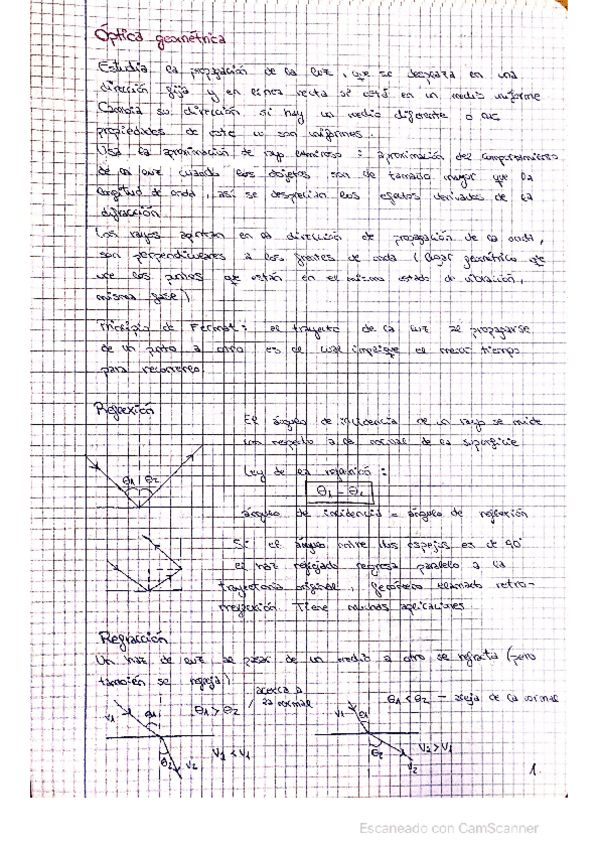 Óptica geométrica
Estudia la propagación de la luz, que se desplaza en una
dirección fija y en línea recta si está en un medio uniforme
Cambia su dirección si hay un medio diferente o las
propiedades de este no son uniformes.
Usa la aproximación de rayo luminoso: aproximación del comportamiento
de la luz cuando los objetos son de tamaño mayor que la
longitud de onda, así se desprecian los efectos derivados de la
difracción
Los rayos apuntan en la dirección de propagación de la onda,
son perpendiculares a los frentes de onda (lugar geométrico que
une los puntos que están en el mismo estado de vibración,
misma fase)
Principio de Fermat: el trayecto de la luz al propagarse
de un punto a otro es el cual implique el menor tiempo
para recorrerlo.
Reflexión
El ángulo de incidencia de un rayo se mide
con respecto a la normal de la superficie
Ley de la reflexión:
θ1 θ2
θ1 =
ángulo de incidencia = ángulo de reflexión
Si el ángulo entre dos espejos es de 90°
el haz reflejado regresa paralelo a la
trayectoria original, llamado retro-
Tiene muchas aplicaciones
Refracción
Un haz de luz al pasar de un medio a otro se refracta (pero
también se refleja)
θ1 > θ2 / acerca a la normal
θ1 < θ2 - aleja de la normal
v1 θ1
v1 θ1
θ2 v2
θ2 v2
v2 < v1
v2 > v1
1
Escaneado con CamScanner